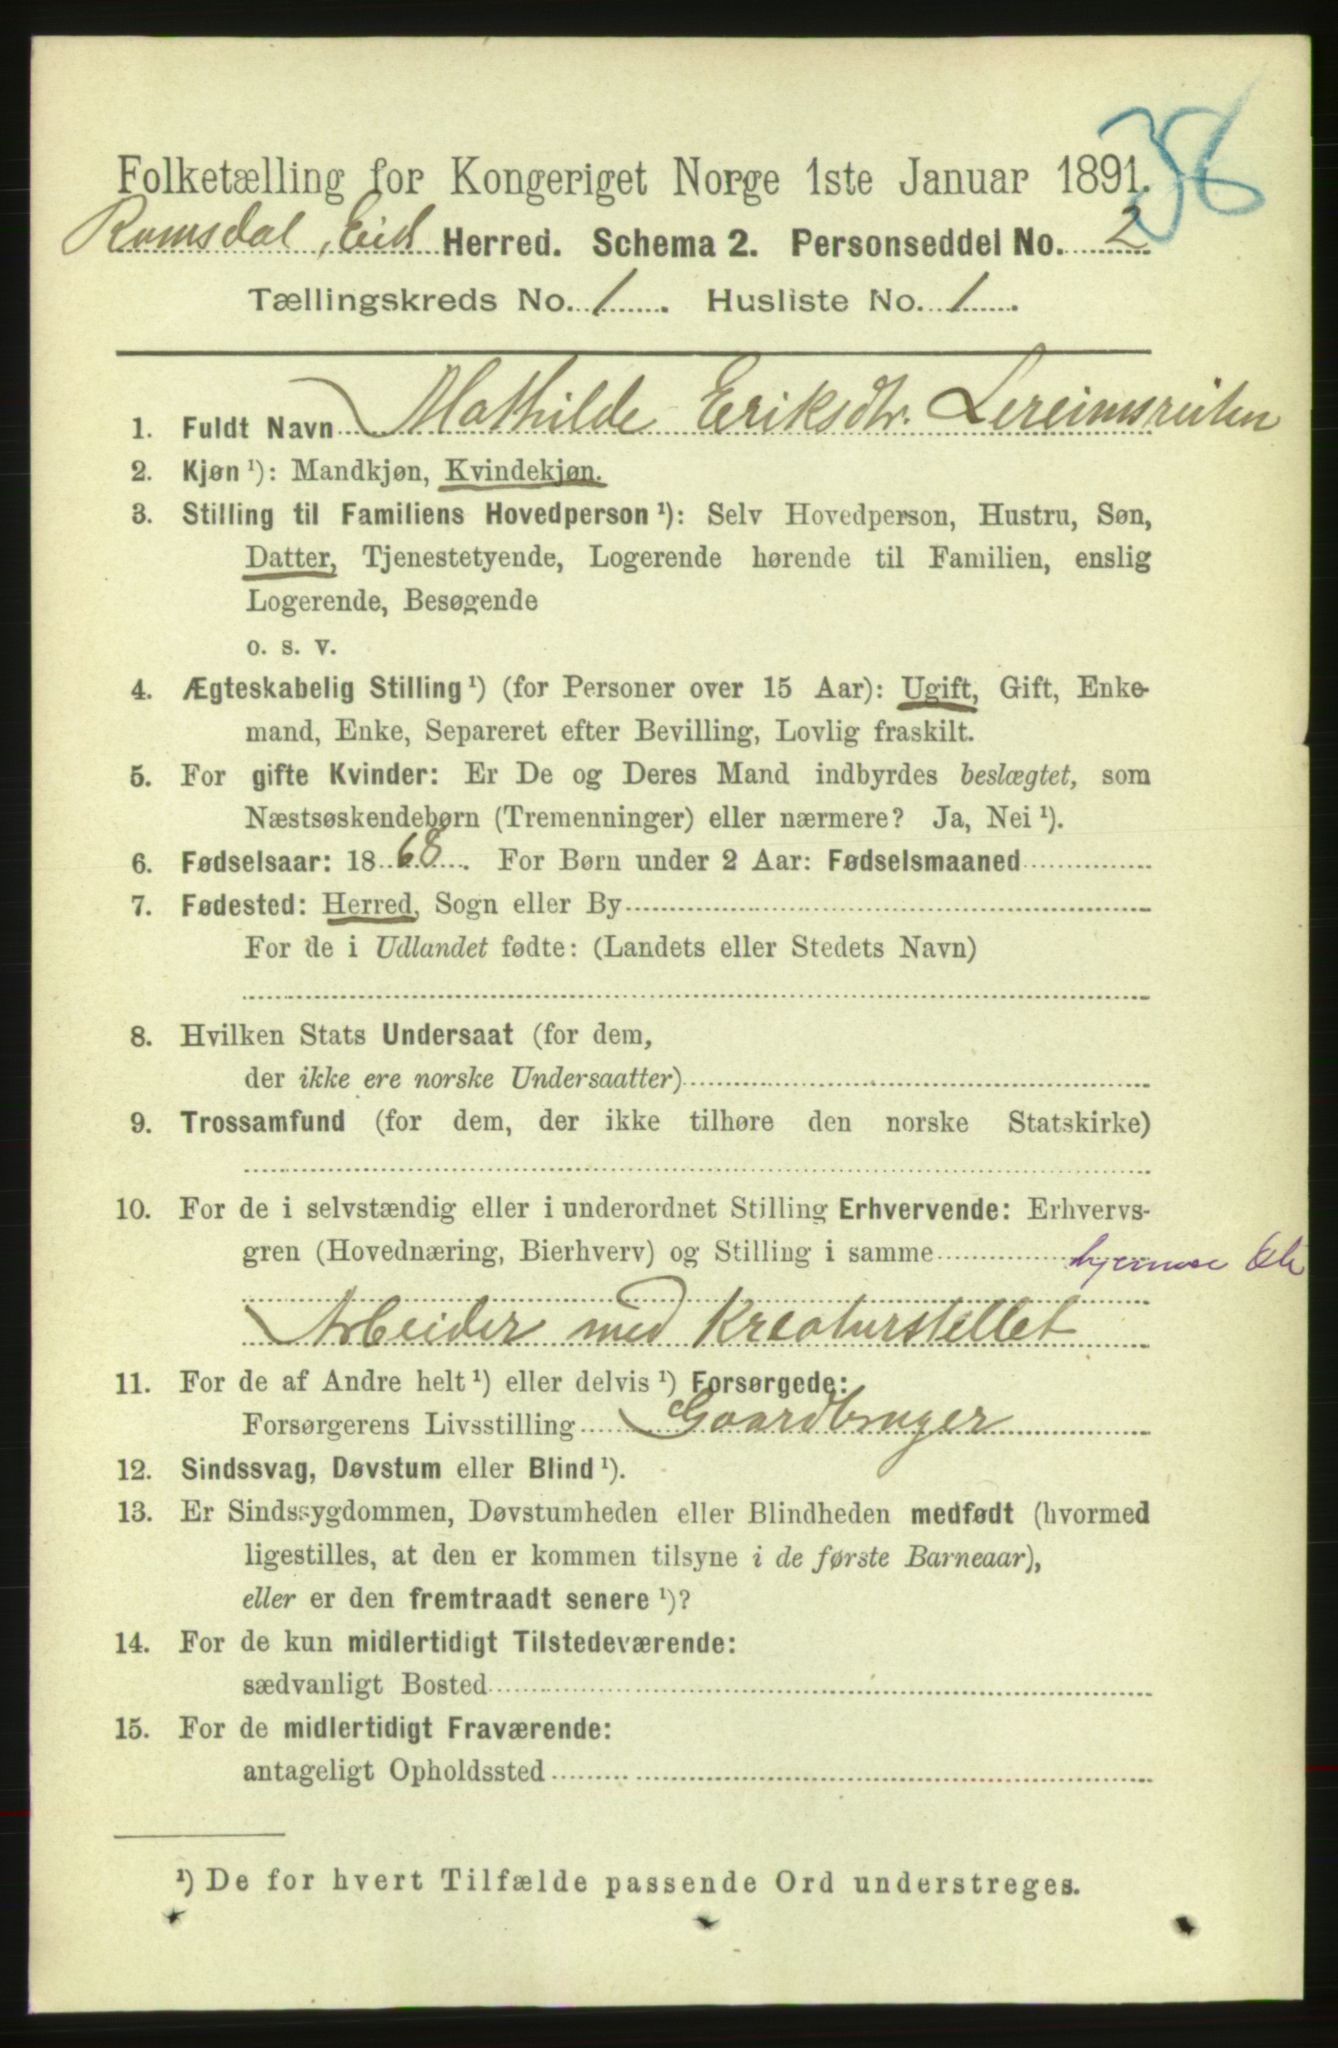 38
Folketælling for Kongeriget Norge 1ste Januar 1891.
Romsdal, Eid Herred. Schema 2. Personseddel No. 2
Tællingskreds No. 1. Husliste No. 1.
1. Fuldt Navn Mathilde Eriksdtr. Lereimsreiten
2. Kjøn ¹): Mandkjøn, Kvindekjøn.
3. Stilling til Familiens Hovedperson ¹): Selv Hovedperson, Hustru, Søn,
Datter, Tjenestetyende, Logerende hørende til Familien, enslig
Logerende, Besøgende
o. s. v.
4. Ægteskabelig Stilling ¹) (for Personer over 15 Aar): Ugift, Gift, Enke-
mand, Enke, Separeret efter Bevilling, Lovlig fraskilt.
5. For gifte Kvinder: Er De og Deres Mand indbyrdes beslægtet, som
Næstsøskendebørn (Tremenninger) eller nærmere? Ja, Nei ¹).
6. Fødselsaar: 1868. For Børn under 2 Aar: Fødselsmaaned
7. Fødested: Herred, Sogn eller By
For de i Udlandet fødte: (Landets eller Stedets Navn)
8. Hvilken Stats Undersaat (for dem,
der ikke ere norske Undersaatter)
9. Trossamfund (for dem, der ikke tilhøre den norske Statskirke)
10. For de i selvstændig eller i underordnet Stilling Erhvervende: Erhvervs-
gren (Hovednæring, Bierhverv) og Stilling i samme hjemme
Arbeider med Kreaturstellet
11. For de af Andre helt ¹) eller delvis ¹) Forsørgede:
Forsørgerens Livsstilling Gaardbruger
12. Sindssvag, Døvstum eller Blind ¹).
13. Er Sindssygdommen, Døvstumheden eller Blindheden medfødt (hvormed
ligestilles, at den er kommen tilsyne i de første Barneaar),
eller er den fremtraadt senere ¹)?
14. For de kun midlertidigt Tilstedeværende:
sædvanligt Bosted
15. For de midlertidigt Fraværende:
antageligt Opholdssted
¹) De for hvert Tilfælde passende Ord understreges.